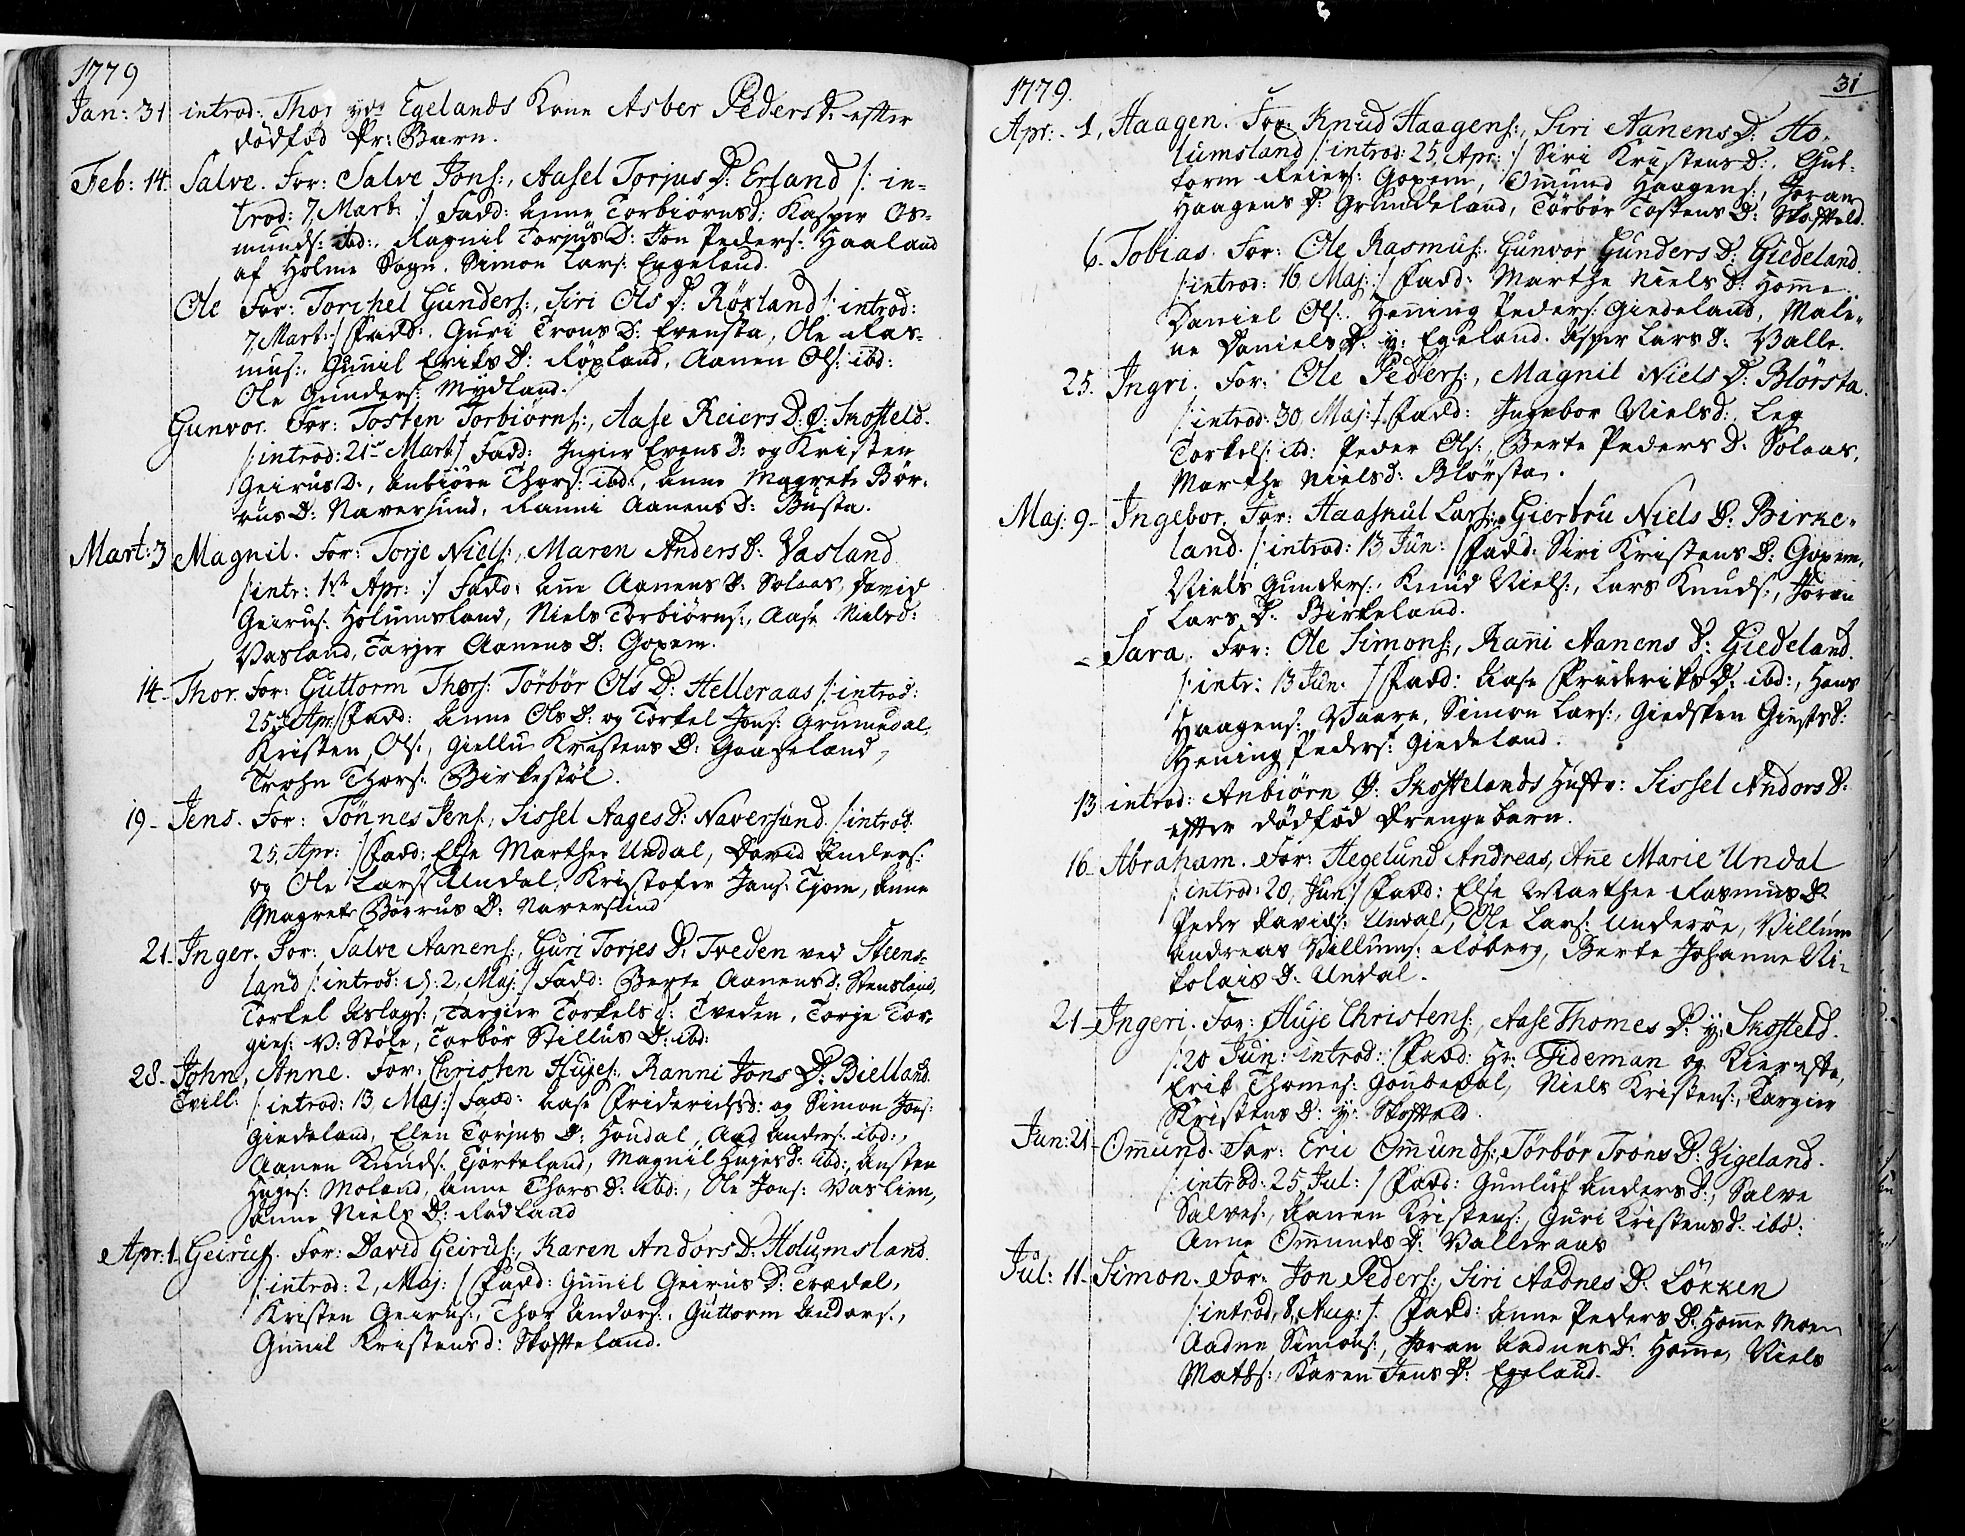 1779
Jan: 31 introd: Thor ydr Egelands Kone Asber Peders D. efter
dödfød Pr: Barn.
Feb: 14. Salve. For: Salve Jons:, Aasel Torjus D: Erland /: in-
trod: 7, Mart: :/ Fadd: Anne Torbiørnsd: Kasper Os-
munds: ibd:, Ragnil Torjus D: Jon Peders: Haaland
af Holme Sogn. Simon Lars: Egeland.
Ole For: Torchel Gunders:, Siri Ols D: Röxland /: introd:
7, Mart: :/ Fadd: Guri Trons D: Evensta, Ole Ras-
mus:, Gunil Eriks D: Röxland, Aanen Ols: ibd:
Ole Gunders: Mydland.
Gunvor. For: Tosten Torbiørns:, Aase Reiers D: Ø: Skofteld.
/: introd: 21de Mart :/ Fadd: Ingier Evens D: og Kristen
Geirus D:, Anbiørn Thors: ibd:, Anne Magrete Bör-
rus D: Naversund, Ranni Aanens D: Busta.
Mart: 3 Magnil. For: Torje Niels:, Maren Anders D: Vasland
/: intr: 1ste Apr: :/ Fadd: Ane Aanens D: Solaas, David
Geirus: Holumsland, Niels Torbiørns:, Aase Nielsd:
Vasland, Tarjer Aanens D: Goxem.
14- Thor. For: Guttorm Thors: Törbör Ols D: Helleraas /: introd:
25de Apr: :/ Fadd: Anne Ols D: og Torkel Jons: Grumedal,
Kristen Ols:, Giellu Kristens D: Gaaseland,
Trohn Thors: Birkestöl.
19- Jens. For: Tönnes Jens:, Sissel Aages D: Naversund. /: introd:
25, Apr: :/ Fadd: Else Marthee Undal, David Anders:
og Ole Lars: Undal, Kristofer Jans: Tjom, Anne
Magrete Börrus D: Naversund
21- Inger. For: Salve Aanens:, Guri Torjes D: Tveden ved Steens-
land /: introd: d: 2, Maj: :/ Fadd: Berte Aanens D: Stensland,
Torkel Aslags:, Targier Torkels D: Tveden, Torje Tor-
gies: V: Støle, Torbör Stillus D: ibd:
28- John, Anne. For: Christen Hujes:, Ranni Jons D: Bielland.
Tvill: /: introd: 13 Maj: :/ Fadd: Aase Friderichs D: og Simon Jons:
Giedeland, Elen Torjus D: Houdal, Aad Anders: ibd:,
Aanen Knuds: Tjorteland, Magnil Hujes D: ibd:, Austen
Hujes: Moland, Anne Thors D: ibd:, Ole Jons: Vaslien,
Anne Niels D: Rodland
Apr: 1. Geirus. For: David Geirus:, Karen Andors D: Holumsland.
/: introd: 2, Maj: :/ Fadd: Gunnil Geirus D: Trædal,
Kristen Geirus:, Thor Andors:, Guttorm Andors:,
Gunnil Kristensd: Skofteland.
31
1779.
Apr: - 1, Haagen. For: Knud Haagens:, Siri Aanens D: Ho-
lumsland /: introd: 25, Apr: :/ Siri Kristens D:. Gut-
torm Reiers: Goxem, Omund Haagens:, Joran
Haagens D: Grundeland, Törbör Tostens D: Skofteld.
6. Tobias. For: Ole Rasmus: Gunvor Gunders D: Giedeland.
/: introd: 16, Maj: :/ Fadd: Marthe Niels D: Homme.
Daniel Ols:. Hening Peders: Giedeland, Male-
ne Daniels D: y: Egeland. Asper Lars D: Valle.
25. Ingri. For: Ole Peders:, Magnil Niels D: Blörsta.
/: introd: 30, Maj: :/ Fadd: Ingebor Niels d: Leg
Torkels: ibd: Peder Ols:, Berte Peders D: Solaas,
Marthe Nielsd: Blörsta.
Maj. 9- Ingebor. For: Haaskul Lars: Giertru Niels D: Birke-
land. /: introd: 13 Jun: :/ Fadd: Siri Kristens D: Goxem,
Niels Gunders:, Knud Niels:, Lars Knuds:, Joran
Lars D: Birkeland.
- Sara. For: Ole Simons:, Ranni Aanens D: Giedeland.
/: intr: 13 Jun: :/ Fadd: Aase Frideriks D: ibd:, Hans
Haagens: Vaare, Simon Lars:, Giedsken Giestsd:
Hening Peders: Giedeland.
13 introd: Anbiørn Ø: Skoftelands Hustr: Sissel Andors D:
efter dödfød Drengebarn.
16- Abraham. For: Hegelund Andreas, Ane Marie Undal
/: introd: 20, Jun: :/ Fadd: Else Marthee Rasmus D:
Peder Davids: Undal, Ole Lars: Underöe, Villum
Andreas Villums: Röberg, Berte Johanne Ni-
kolais D: Undal.
21- Ingeri. For: Huje Christens:, Aase Thomes D: y: Skofteld.
/: 20 Jun: introd: :/ Fadd: Hr: Tideman og Kiereste,
Erik Thomes: Goubedal, Niels Kristens:, Targier
Kristens D: y: Skofteld.
Jun: 21- Omund. For: Eric Omunds:, Törbör Trons D: Vigeland.
/: introd: 25, Jul: :/ Fadd: Gunluf Anders D:, Salve
Salves:, Aanen Kristens:, Guri Kristensd: ibd:
Anne Omunds D: Valleraas
Jul: 11- Simon. For: Jon Peders:, Siri Aadnes D: Løkken
/: introd, 8, Aug: :/. Fadd: Anne Peders D: Homme Moen
Aadne Simons:, Joran Aadnes D: Homme, Niels
Mats:, Karen Jens D: Egeland.